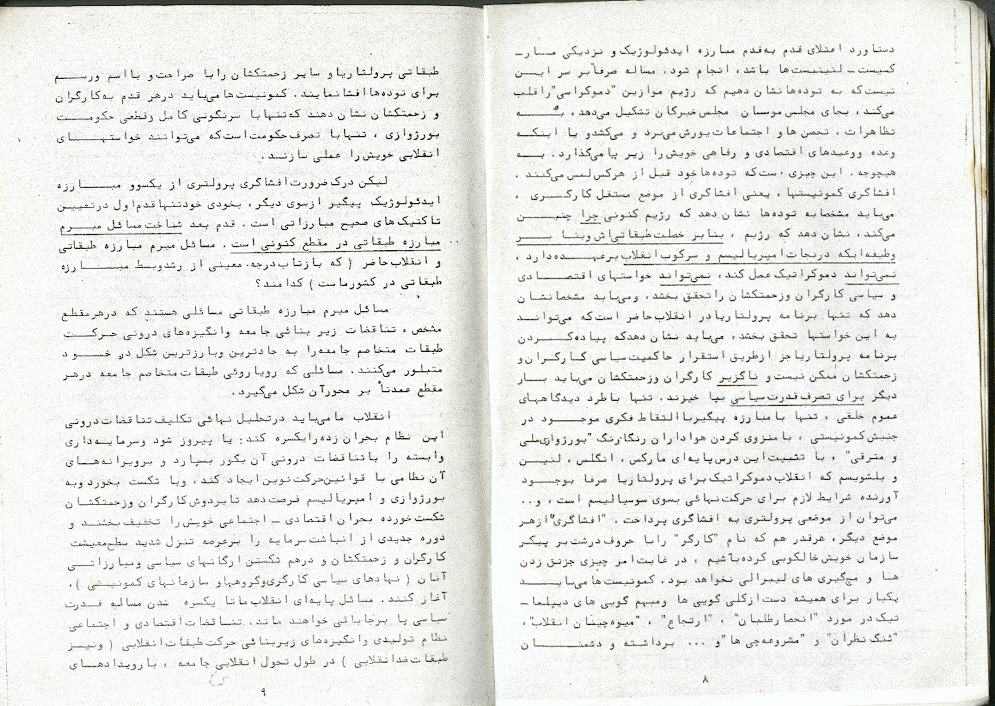 دستاورد اعتلای قدم به‌قدم مبارزه ایدئولوژیک و نزدیکی مارـ
کسیست ـ لنینیست‌ها باشد، انجام شود. مساله صرفاً بر سر این
نیست که به توده‌ها نشان دهیم که رژیم موازین "دموکراسی" را قلب
می‌کند، بجای مجلس موسسان مجلس خبرگان تشکیل می‌دهد، به
تظاهرات، تحصن‌ها و اجتماعات یورش می‌برد و می‌کشد و یا اینکه
وعده و وعیدهای اقتصادی و رفاهی خویش را زیر پا می‌گذارد. به
هیچوجه. این چیزی ست که توده‌ها خود قبل از هرکس لمس می‌کنند.
افشاگری کمونیستها، یعنی افشاگری از موضع مستقل کارگری،
می‌باید مشخصا به توده‌ها نشان دهد که رژیم کنونی چرا چنین
می‌کند، نشان دهد که رژیم، بنابر خصلت طبقاتی‌اش و بنا بر
وظیفه‌ایکه در نجات امپریالیسم و سرکوب انقلاب برعهده دارد،
نمی‌تواند دموکراتیک عمل کند، نمی‌تواند خواستهای اقتصادی
و سیاسی کارگران و زحمتکشان را تحقق بخشد. و می‌باید مشخصا نشان
دهد که تنها برنامه پرولتاریا در انقلاب حاضر است که می‌تواند
به این خواستها تحقق بخشد، می‌باید نشان دهد که پیاده کردن
برنامه پرولتاریا جز از طریق استقرار حاکمیت سیاسی کارگران و
زحمتکشان ممکن نیست و ناگزیر کارگران و زحمتکشان می‌باید بار
دیگر برای تصرف قدرت سیاسی بپا خیزند. تنها با طرد دیدگاههای
عموم خلقی، تنها با مبارزه پیگیر با التقاط فکری موجود در
جنبش کمونیستی، با منزوی کردن هواداران رنگارنگ "بورژوازی ملی
و مترقی"، با تثبیت این درس پایه‌ای مارکس، انگلس، لنین
و بلشویسم که انقلاب دموکراتیک برای پرولتاریا صرفا بوجود
آورنده شرایط لازم برای حرکت نهائی بسوی سوسیالیسم است، و..
می‌توان از موضعی پرولتری به افشاگری پرداخت. "افشاگری" از هر
موضع دیگر، هرقدر هم که نام "کارگر" را با حروف درشت بر پیکر
سازمان خویش خالکوبی کرده باشیم، در غایت امر چیزی جز نق زدن
ها و مچ‌گیری های لیبرالی نخواهد بود. کمونیست ها می‌باید
یکبار برای همیشه دست از کلی گویی ها و مبهم گویی های دیپلماـ
تیک در مورد "انحصارطلبان"، "ارتجاع"، "میوه‌چینان انقلاب"،
"تنگ نظران" و "مشروعه‌چی ها" و ... برداشته و دشمنان
۸
طبقاتی پرولتاریا و سایر زحمتکشان را با صراحت و با اسم و رسم
برای توده‌ها افشا نمایند. کمونیست‌ها می‌باید در هر قدم به کارگران
و زحمتکشان نشان دهند که تنها با سرنگونی کامل و قطعی حکومت
بورژوازی، تنها با تصرف حکومت است که می‌توانند خواستهای
انقلابی خویش را عملی سازند.
لیکن درک ضرورت افشاگری پرولتری از یکسو و مبارزه
ایدئولوژیک پیگیر از سوی دیگر، بخودی خود تنها قدم اول در تعیین
تاکتیک‌های صحیح مبارزاتی است. قدم بعد شناخت مسائل مبرم
مبارزه طبقاتی در مقطع کنونی است. مسائل مبرم مبارزه طبقاتی
و انقلاب حاضر (که بازتاب درجه معینی از رشد و بسط مبارزه
طبقاتی در کشور ماست) کدامند؟
مسائل مبرم مبارزه طبقاتی مسائلی هستند که در هر مقطع
مشخص، تناقضات زیر بنائی جامعه و انگیزه‌های درونی حرکت
طبقات متخاصم جامعه را به حادترین و بارزترین شکل در خود
متبلور می‌کنند. مسائلی که رویاروئی طبقات متخاصم جامعه در هر
مقطع عمدتاً بر محور آن شکل می‌گیرد.
انقلاب ما می‌باید در تحلیل نهائی تکلیف تناقضات درونی
این نظام بحران زده را یکسره کند: یا پیروز شود و سرمایه‌داری
وابسته را با تناقضات درونی آن بگور بسپارد و بر ویرانه‌های
آن نظامی با قوانین حرکت نوین ایجاد کند، و یا شکست بخورد و به
بورژوازی و امپریالیسم فرصت دهد تا بر دوش کارگران و زحمتکشان
شکست خورده بحران اقتصادی ـ اجتماعی خویش را تخفیف بخشند و
دوره جدیدی از انباشت سرمایه را برعرصه تنزل شدید سطح معیشت
کارگران و زحمتکشان و درهم شکستن ارگانهای سیاسی و مبارزاتی
آنان (نهادهای سیاسی کارگری و گروهها و سازمانهای کمونیستی)،
آغاز کنند. مسائل پایه‌ای انقلاب ما تا یکسره شدن مساله قدرت
سیاسی پا برجا باقی خواهند ماند. تناقضات اقتصادی و اجتماعی
نظام تولیدی و انگیزه‌های زیربنائی حرکت طبقات انقلابی (و نیز
طبقات ضد انقلابی) در طول تحول انقلابی جامعه، با رویدادهای
۹